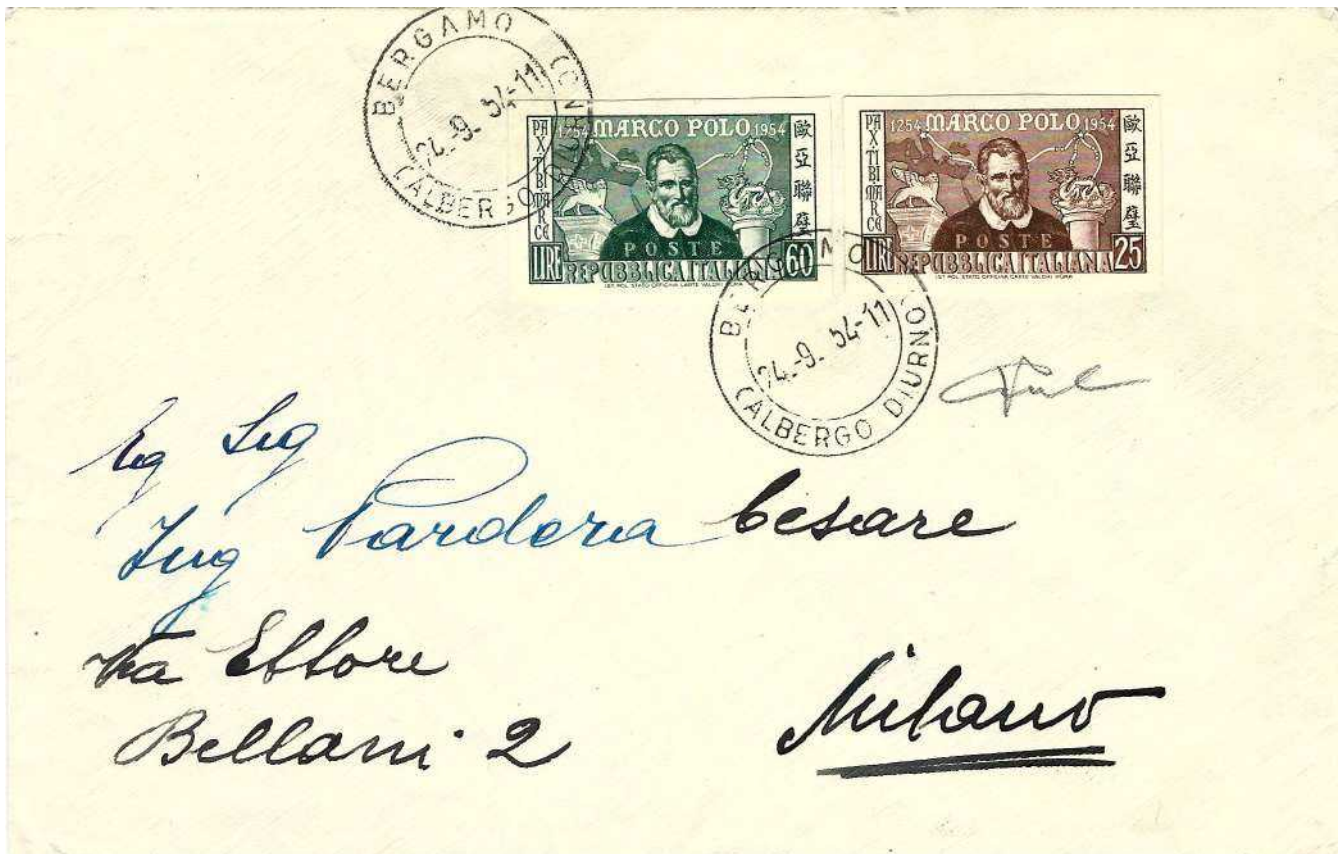 BERGAMO
24.-9. 54-11
(ALBERGO DIURNO)
PAX TIBI MARCE
1254 MARCO POLO 1954
歐亞聯璧
POSTE
LIRE 60
REPUBBLICA ITALIANA
IST. POL. STATO OFFICINA CARTE VALORI ROMA
PAX TIBI MARCE
1254 MARCO POLO 1954
歐亞聯璧
POSTE
LIRE 25
REPUBBLICA ITALIANA
IST. POL. STATO OFFICINA CARTE VALORI ROMA
BERGAMO
24.-9. 54-11
(ALBERGO DIURNO)
Eg Sig
Ing Pardera Cesare
Via Ettore
Bellani 2
Milano